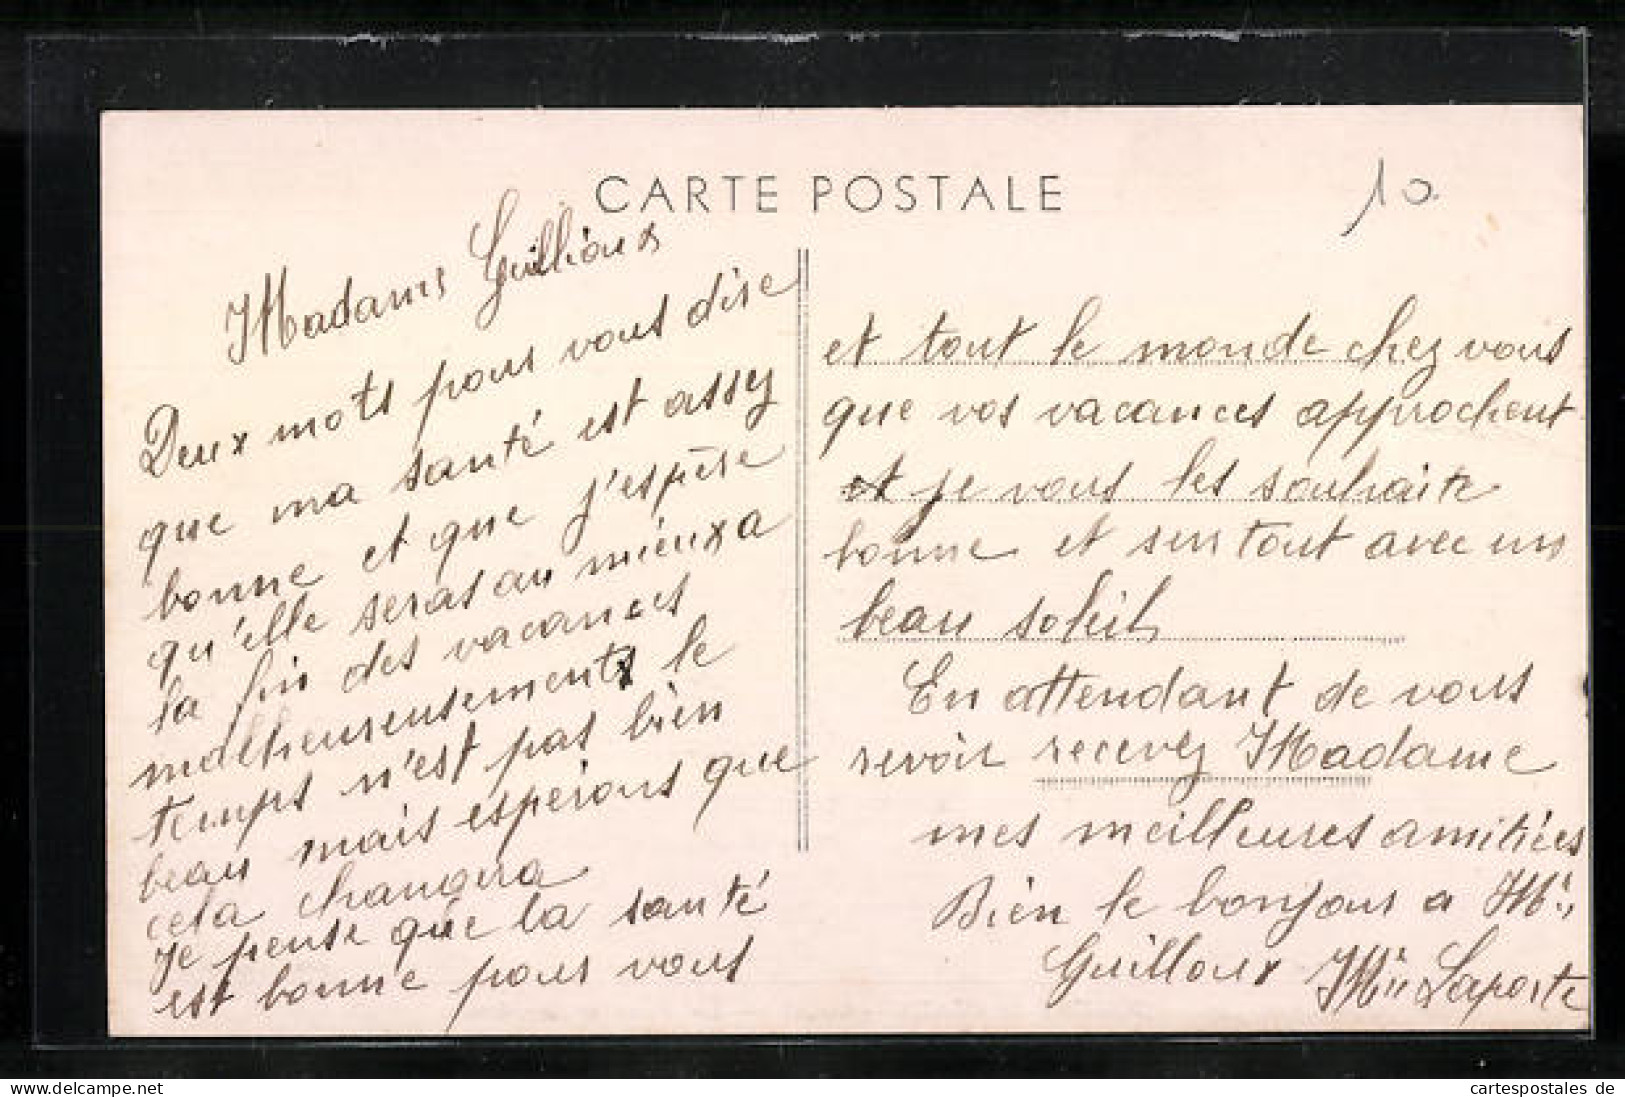 CARTE POSTALE
10.
Madame Guilloux
Deux mots pour vous dire
que ma santé est assez
bonne et que j'espère
qu'elle seras au mieux a
la fin des vacances
malheureusements le
temps n'est pas bien
beau mais espérons que
cela changera
Je pense que la santé
est bonne pour vous
et tout le monde chez vous
que vos vacances approchent
et je vous les souhaite
bonne et surtout avec un
beau soleil
En attendant de vous
revoir recevez Madame
mes meilleures amitiées
Bien le bonjour a Mr.,
Guilloux Mlle Laporte
cartespostales de